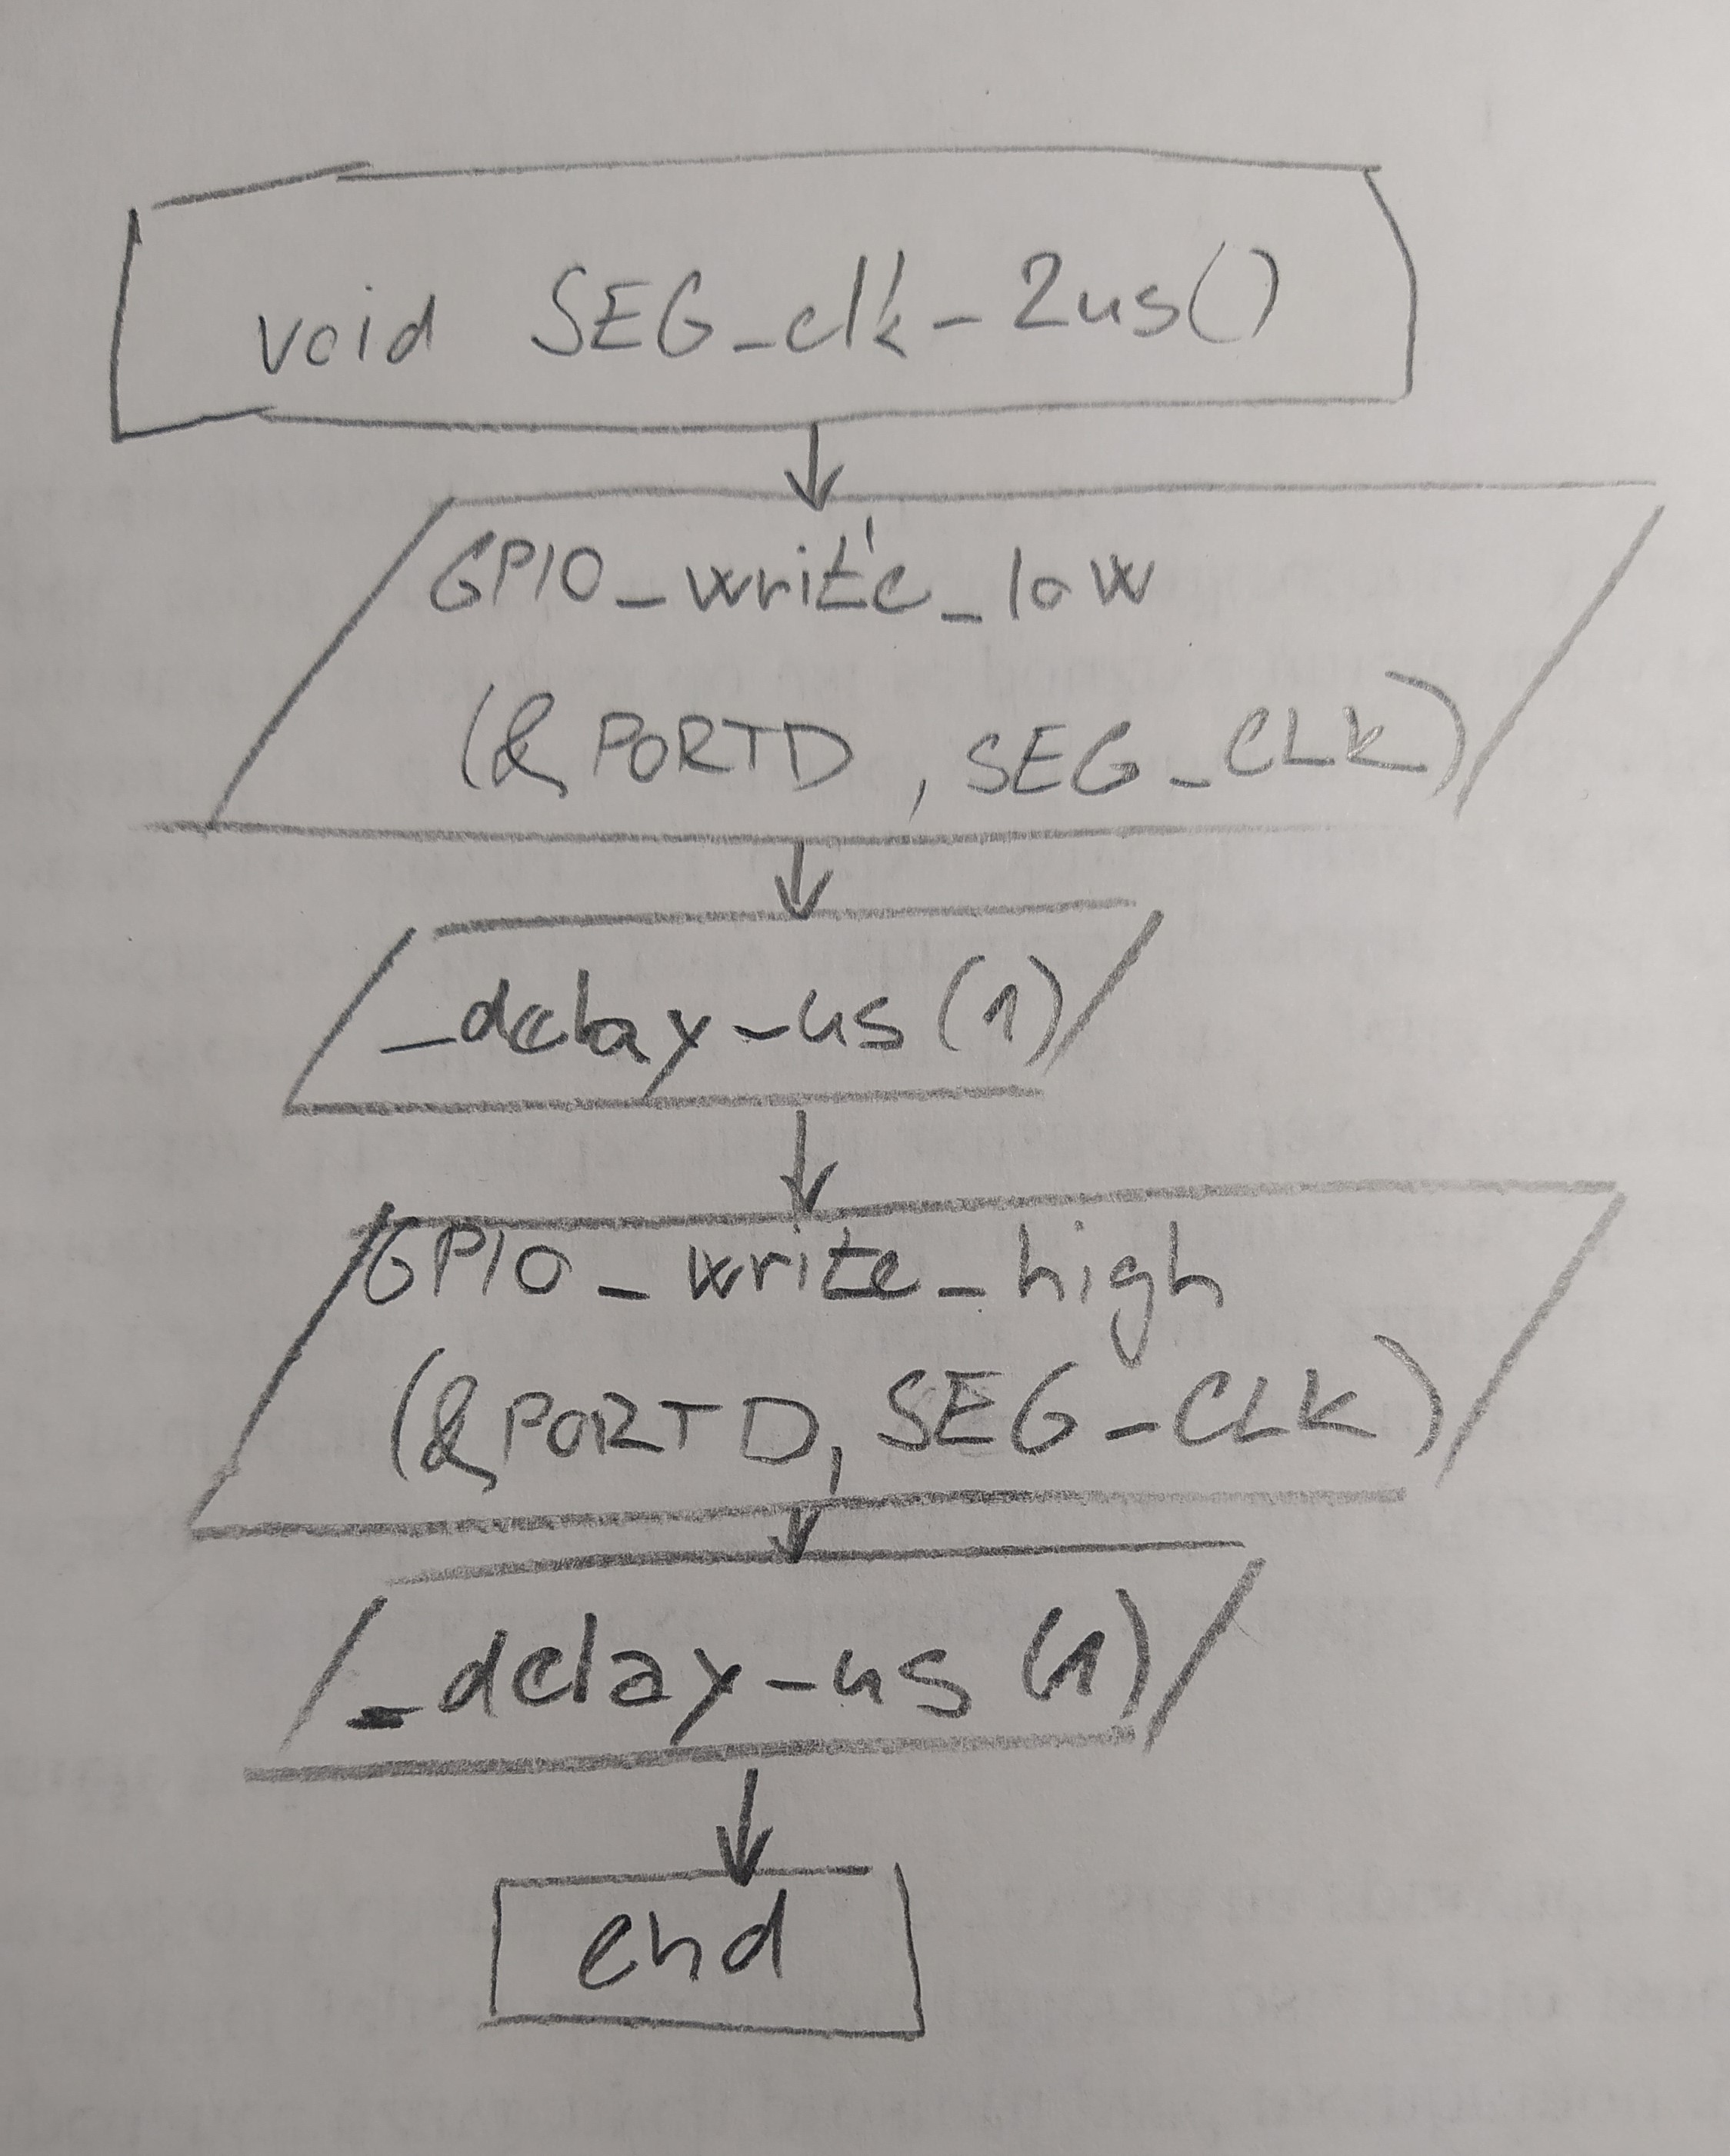 void SEG_clk_2us()
GPIO_write_low
(& PORTD, SEG_CLK)
_delay_us(1)
GPIO_write_high
(& PORTD, SEG_CLK)
_delay_us(1)
end